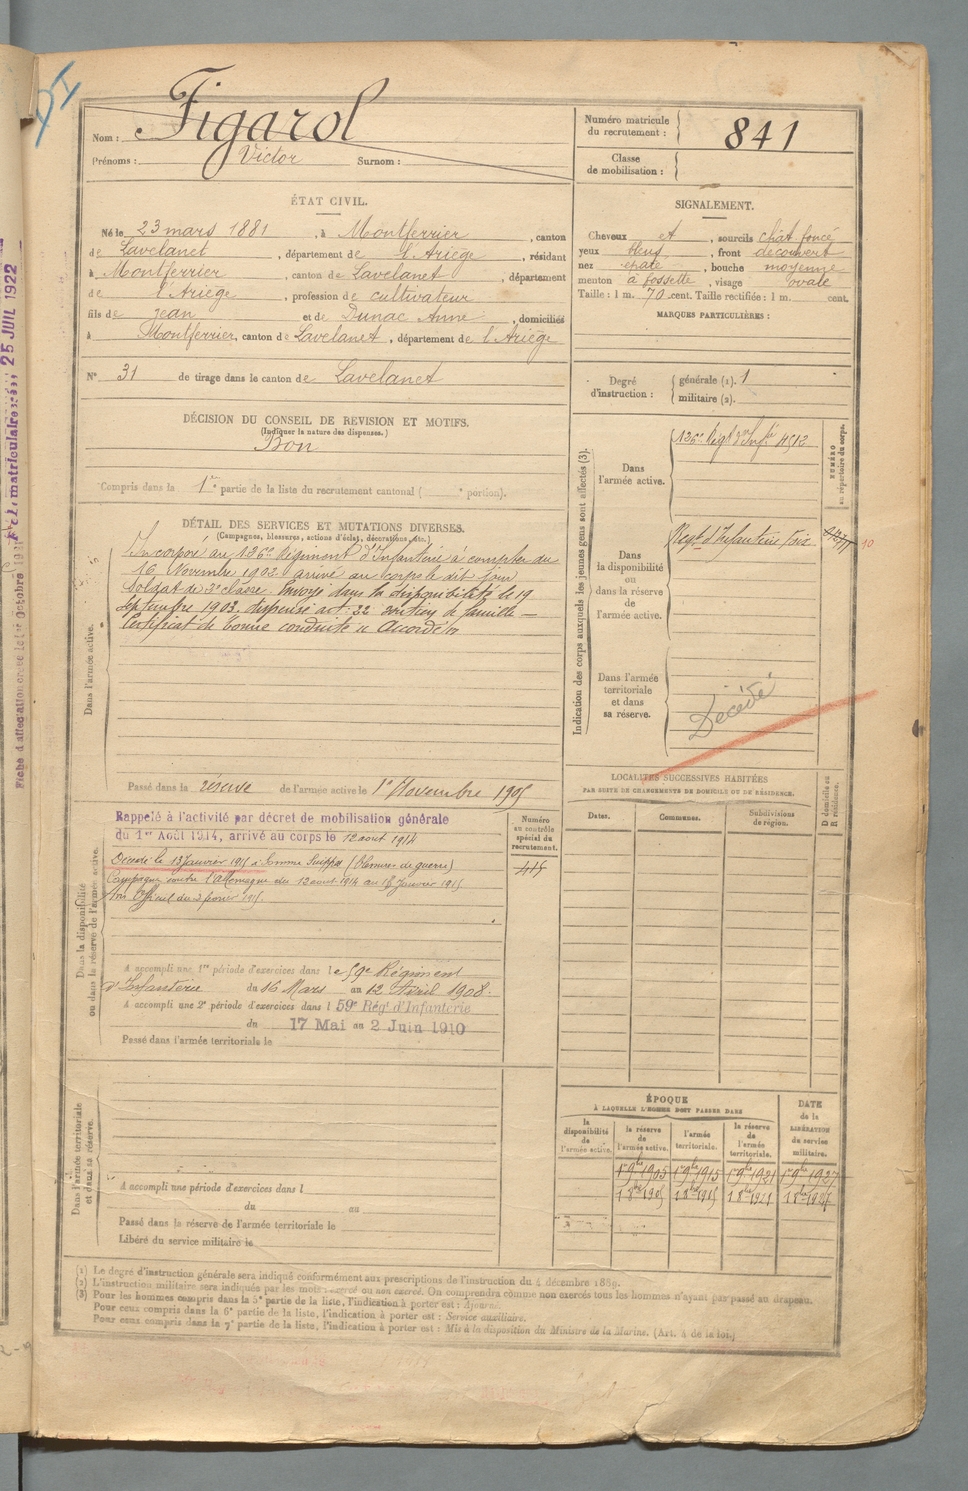 Nom : Figarol
Prénoms : Victor Surnom :
Numéro matricule du recrutement : 841
Classe de mobilisation :
ÉTAT CIVIL.
Né le 23 mars 1881, à Montferrier, canton
de Lavelanet, département de l'Ariège, résidant
à Montferrier, canton de Lavelanet, département
de l'Ariège, profession de cultivateur
fils de Jean et de Dunac Anne, domiciliés
à Montferrier, canton de Lavelanet, département de l'Ariège
N° 31 de tirage dans le canton de Lavelanet
SIGNALEMENT.
Cheveux et, sourcils chât. foncé
yeux bleus, front découvert
nez épaté, bouche moyenne
menton à fossette, visage ovale
Taille : 1 m. 70 cent. Taille rectifiée : 1 m. cent.
MARQUES PARTICULIÈRES :
Degré d'instruction : générale (1). 1
militaire (2).
DÉCISION DU CONSEIL DE REVISION ET MOTIFS.
(Indiquer la nature des dispenses.)
Bon
Compris dans la 1re partie de la liste du recrutement cantonal ( e portion).
DÉTAIL DES SERVICES ET MUTATIONS DIVERSES.
(Campagnes, blessures, actions d'éclat, décorations, etc.)
Dans l'armée active.
Incorporé au 136e Régiment d'Infanterie à compter du
16 Novembre 1902 arrivé au corps le dit jour
soldat de 2e classe. Envoyé dans la disponibilité le 19
septembre 1903. dispensé art. 22 soutien de famille —
Certificat de bonne conduite « Accordé »
Passé dans la réserve de l'armée active le 1er Novembre 1905
Indication des corps auxquels les jeunes gens sont affectés (3).
NUMÉRO au répertoire du corps.
Dans l'armée active.
136e Régt d'Infie 4512
Dans la disponibilité ou dans la réserve de l'armée active.
Régt d'Infanterie Foix
10
Dans l'armée territoriale et dans sa réserve.
Décédé
Dans la disponibilité ou dans la réserve de l'armée active.
Rappelé à l'activité par décret de mobilisation générale
du 1er Août 1914, arrivé au corps le 12 aout 1914
Décédé le 13 Janvier 1915 à Somme Suippes (Blessures de guerre)
Campagne contre l'Allemagne du 12 aout 1914 au 13 Janvier 1915
Numéro au contrôle spécial du recrutement.
415
A accompli une 1re période d'exercices dans le 59e Régiment
d'Infanterie du 16 Mars au 12 Avril 1908.
A accompli une 2e période d'exercices dans l 59e Régt d'Infanterie
du 17 Mai au 2 Juin 1910
Passé dans l'armée territoriale le
LOCALITÉS SUCCESSIVES HABITÉES
PAR SUITE DE CHANGEMENTS DE DOMICILE OU DE RÉSIDENCE.
Dates. Communes. Subdivisions de région.
D domicile ou R résidence.
ÉPOQUE
À LAQUELLE L'HOMME DOIT PASSER DANS
la disponibilité de l'armée active.
la réserve de l'armée active.
l'armée territoriale.
la réserve de l'armée territoriale.
DATE de la LIBÉRATION du service militaire.
1er 9bre 1905 1er 9bre 1915 1er 9bre 1921 1er 9bre 1927
Dans l'armée territoriale et dans sa réserve.
A accompli une période d'exercices dans l
du au
Passé dans la réserve de l'armée territoriale le
Libéré du service militaire le
(1) Le degré d'instruction générale sera indiqué conformément aux prescriptions de l'instruction du 4 décembre 1889.
(2) L'instruction militaire sera indiquée par les mots : exercé ou non exercé. On comprendra comme non exercés tous les hommes n'ayant pas passé au drapeau.
(3) Pour les hommes compris dans la 5e partie de la liste, l'indication à porter est : Ajourné.
Pour ceux compris dans la 6e partie de la liste, l'indication à porter est : Service auxiliaire.
Pour ceux compris dans la 7e partie de la liste, l'indication à porter est : Mis à la disposition du Ministre de la Marine. (Art. 4 de la loi.)
25 JUIL 1922